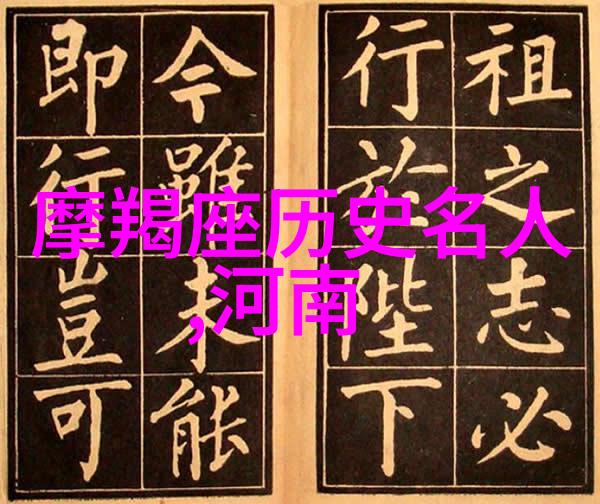 祖之志必
行於陛下
今雖未能
即行豈可
摩羯座历史名人
,河南